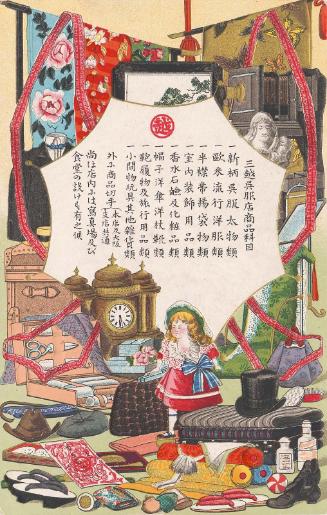 越
三越呉服店商品科目
一新柄呉服太物類
一欧米流行洋服類
一半襟帯揚袋物類
一室内装飾用品類
一香水石鹸及化粧品類
一帽子洋傘洋杖靴類
一鞄履物及旅行用品類
一小間物玩具其他雑貨類
外ニ商品切手 本店及大阪支店共通
尚ほ店内には寫真場及び
食堂の設けも有之候